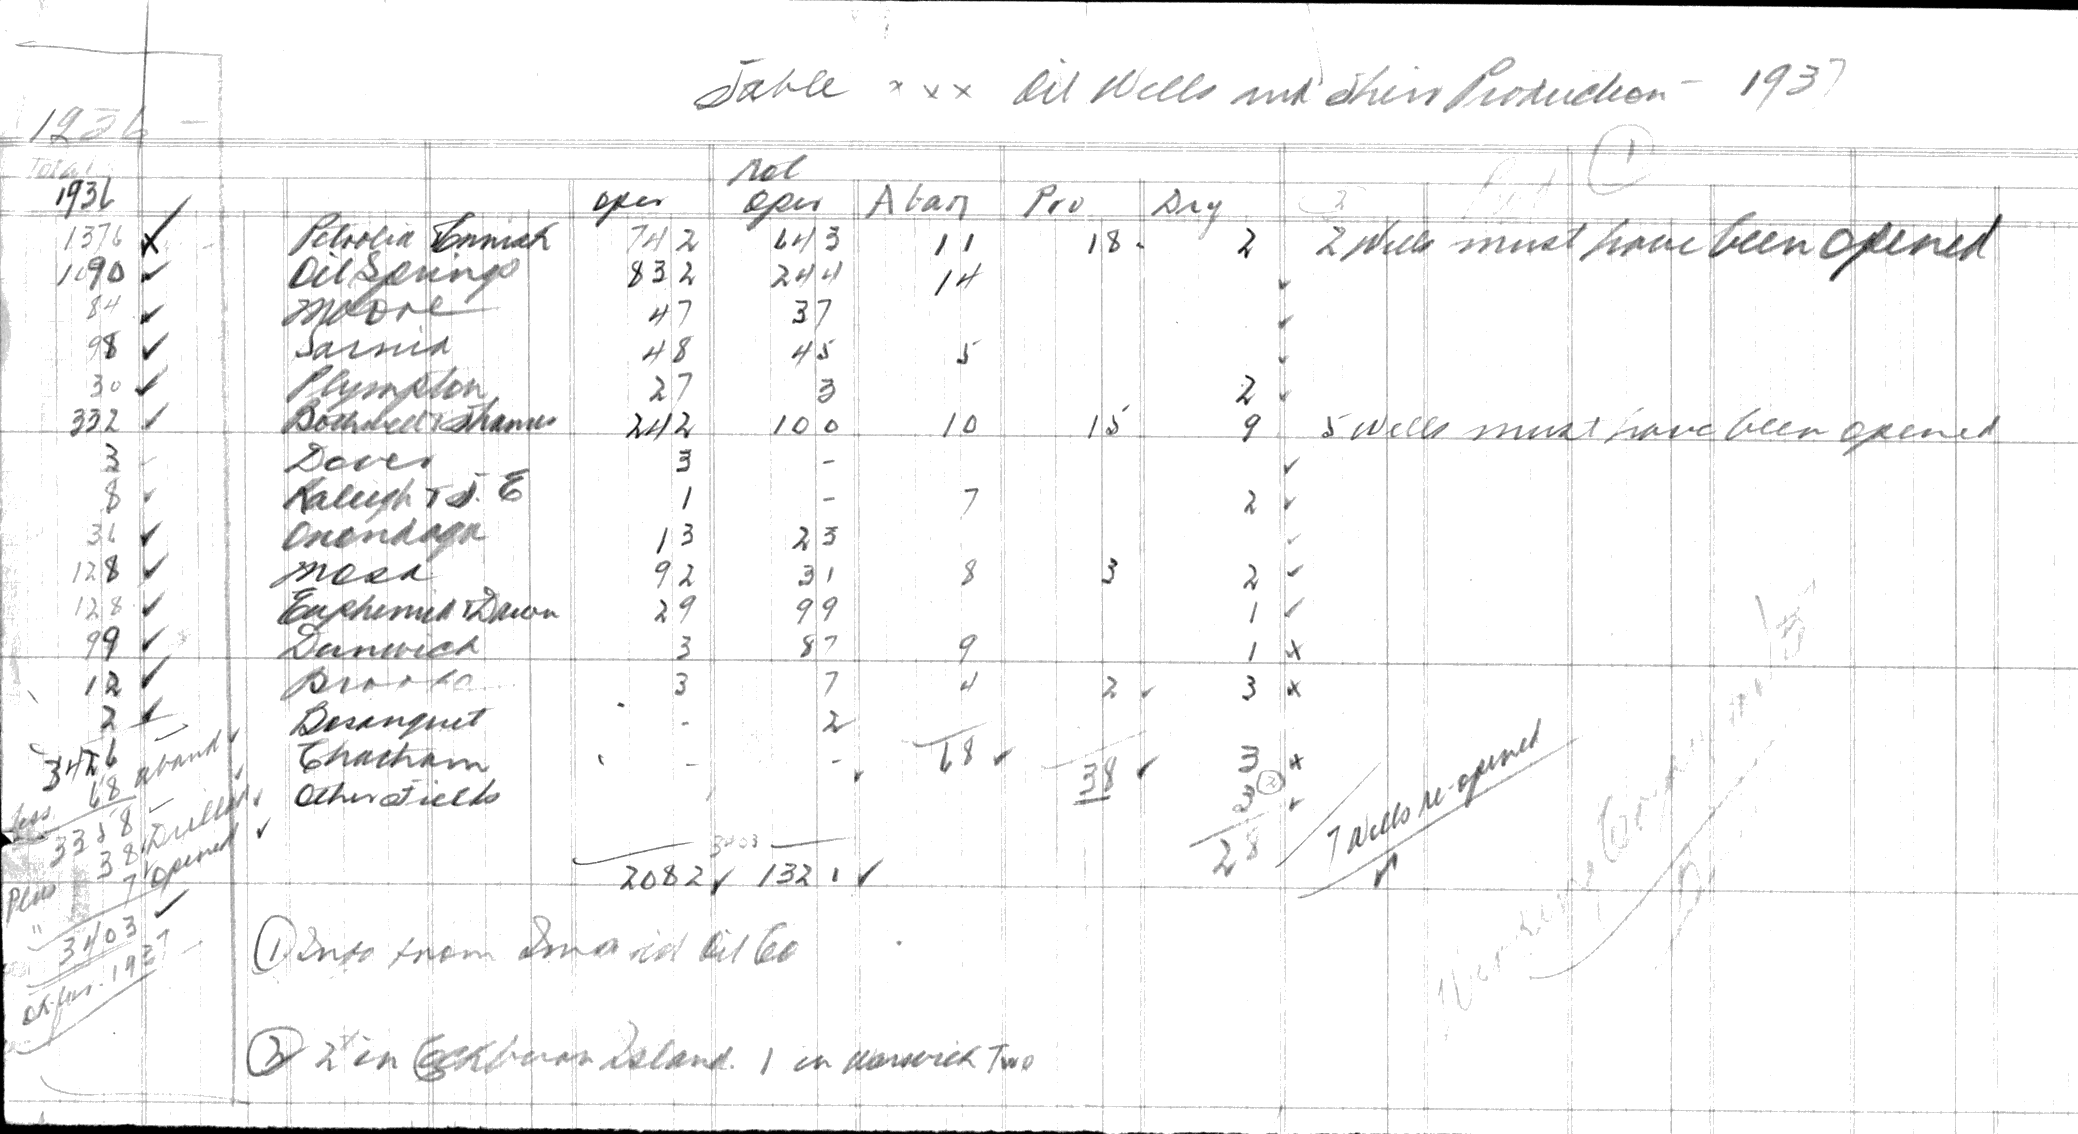 Table xxx Oil Wells and Their Production - 1937
1936 -
Total
1936 oper not oper Aban Pro Dry
1376 x Petrolia & Enniskn 742 643 11 18 2 2 Wells must have been opened
1090 ✓ Oil Springs 832 244 14 ✓
84 ✓ Moore 47 37 ✓
98 ✓ Sarnia 48 45 5 ✓
30 ✓ Plympton 27 3 2 ✓
332 ✓ Bothwell & Thames 242 100 10 15 9 5 Wells must have been opened
3 Dover 3 - ✓
8 ✓ Raleigh & T. E 1 - 7 2 ✓
36 ✓ Onondaga 13 23 ✓
128 ✓ Mosa 92 31 8 3 2 ✓
128 ✓ Euphemia & Dawn 29 99 1 ✓
99 ✓ Dunwich 3 87 9 1 x
12 ✓ Brooke 3 7 4 2 ✓ 3 x
2 ✓ Bosanquet - 2
3426 Chatham - - 68 ✓ 38 ✓ 3 x
Other Fields 3 (2) ✓
3403
2082 ✓ 1321 ✓ 28 7 Wells re-opened ✓
less 68 aband ✓
3358
Plus 38 Drilled ✓
" 7 opened ✓
3403 ✓
1937
(1) Info from Imperial Oil Co
(2) 2 in Cockburn Island. 1 in Warwick Twp
(1)